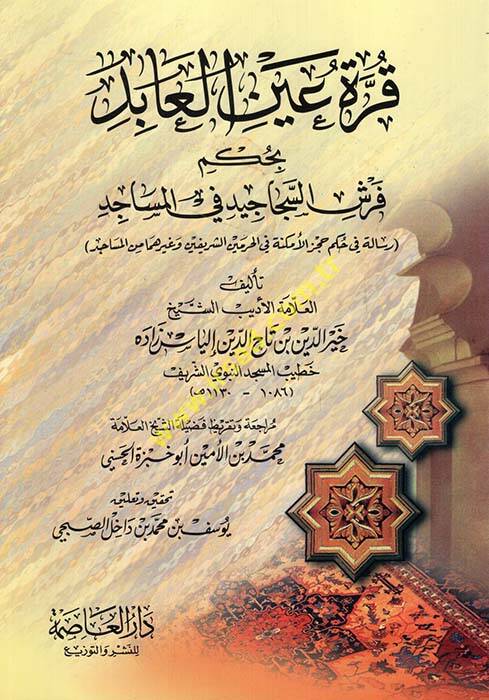 قُرَّة عَيْنِ العَابِدِ
بِحُكمِ
فَرْشِ السَّجَاجِيدِ فِي المَسَاجِدِ
(رسالة في حكم حجز الأمكنة في الحرمين الشريفين وغيرهما من المساجد)
تأليف
العلامة الأديب الشيخ
خير الدين بن تاج الدين إلياس زاده
خطيب المسجد النبوي الشريف
(١٠٨٦ - ١١٣٠هـ)
مراجعة وتقريظ فضيلة الشيخ العلامة
محمد بن الأمين أبو خبزة الحسني
تحقيق وتعليق
يوسف بن محمد بن داخل الصبحي
دار العاصمة
للنشر والتوزيع